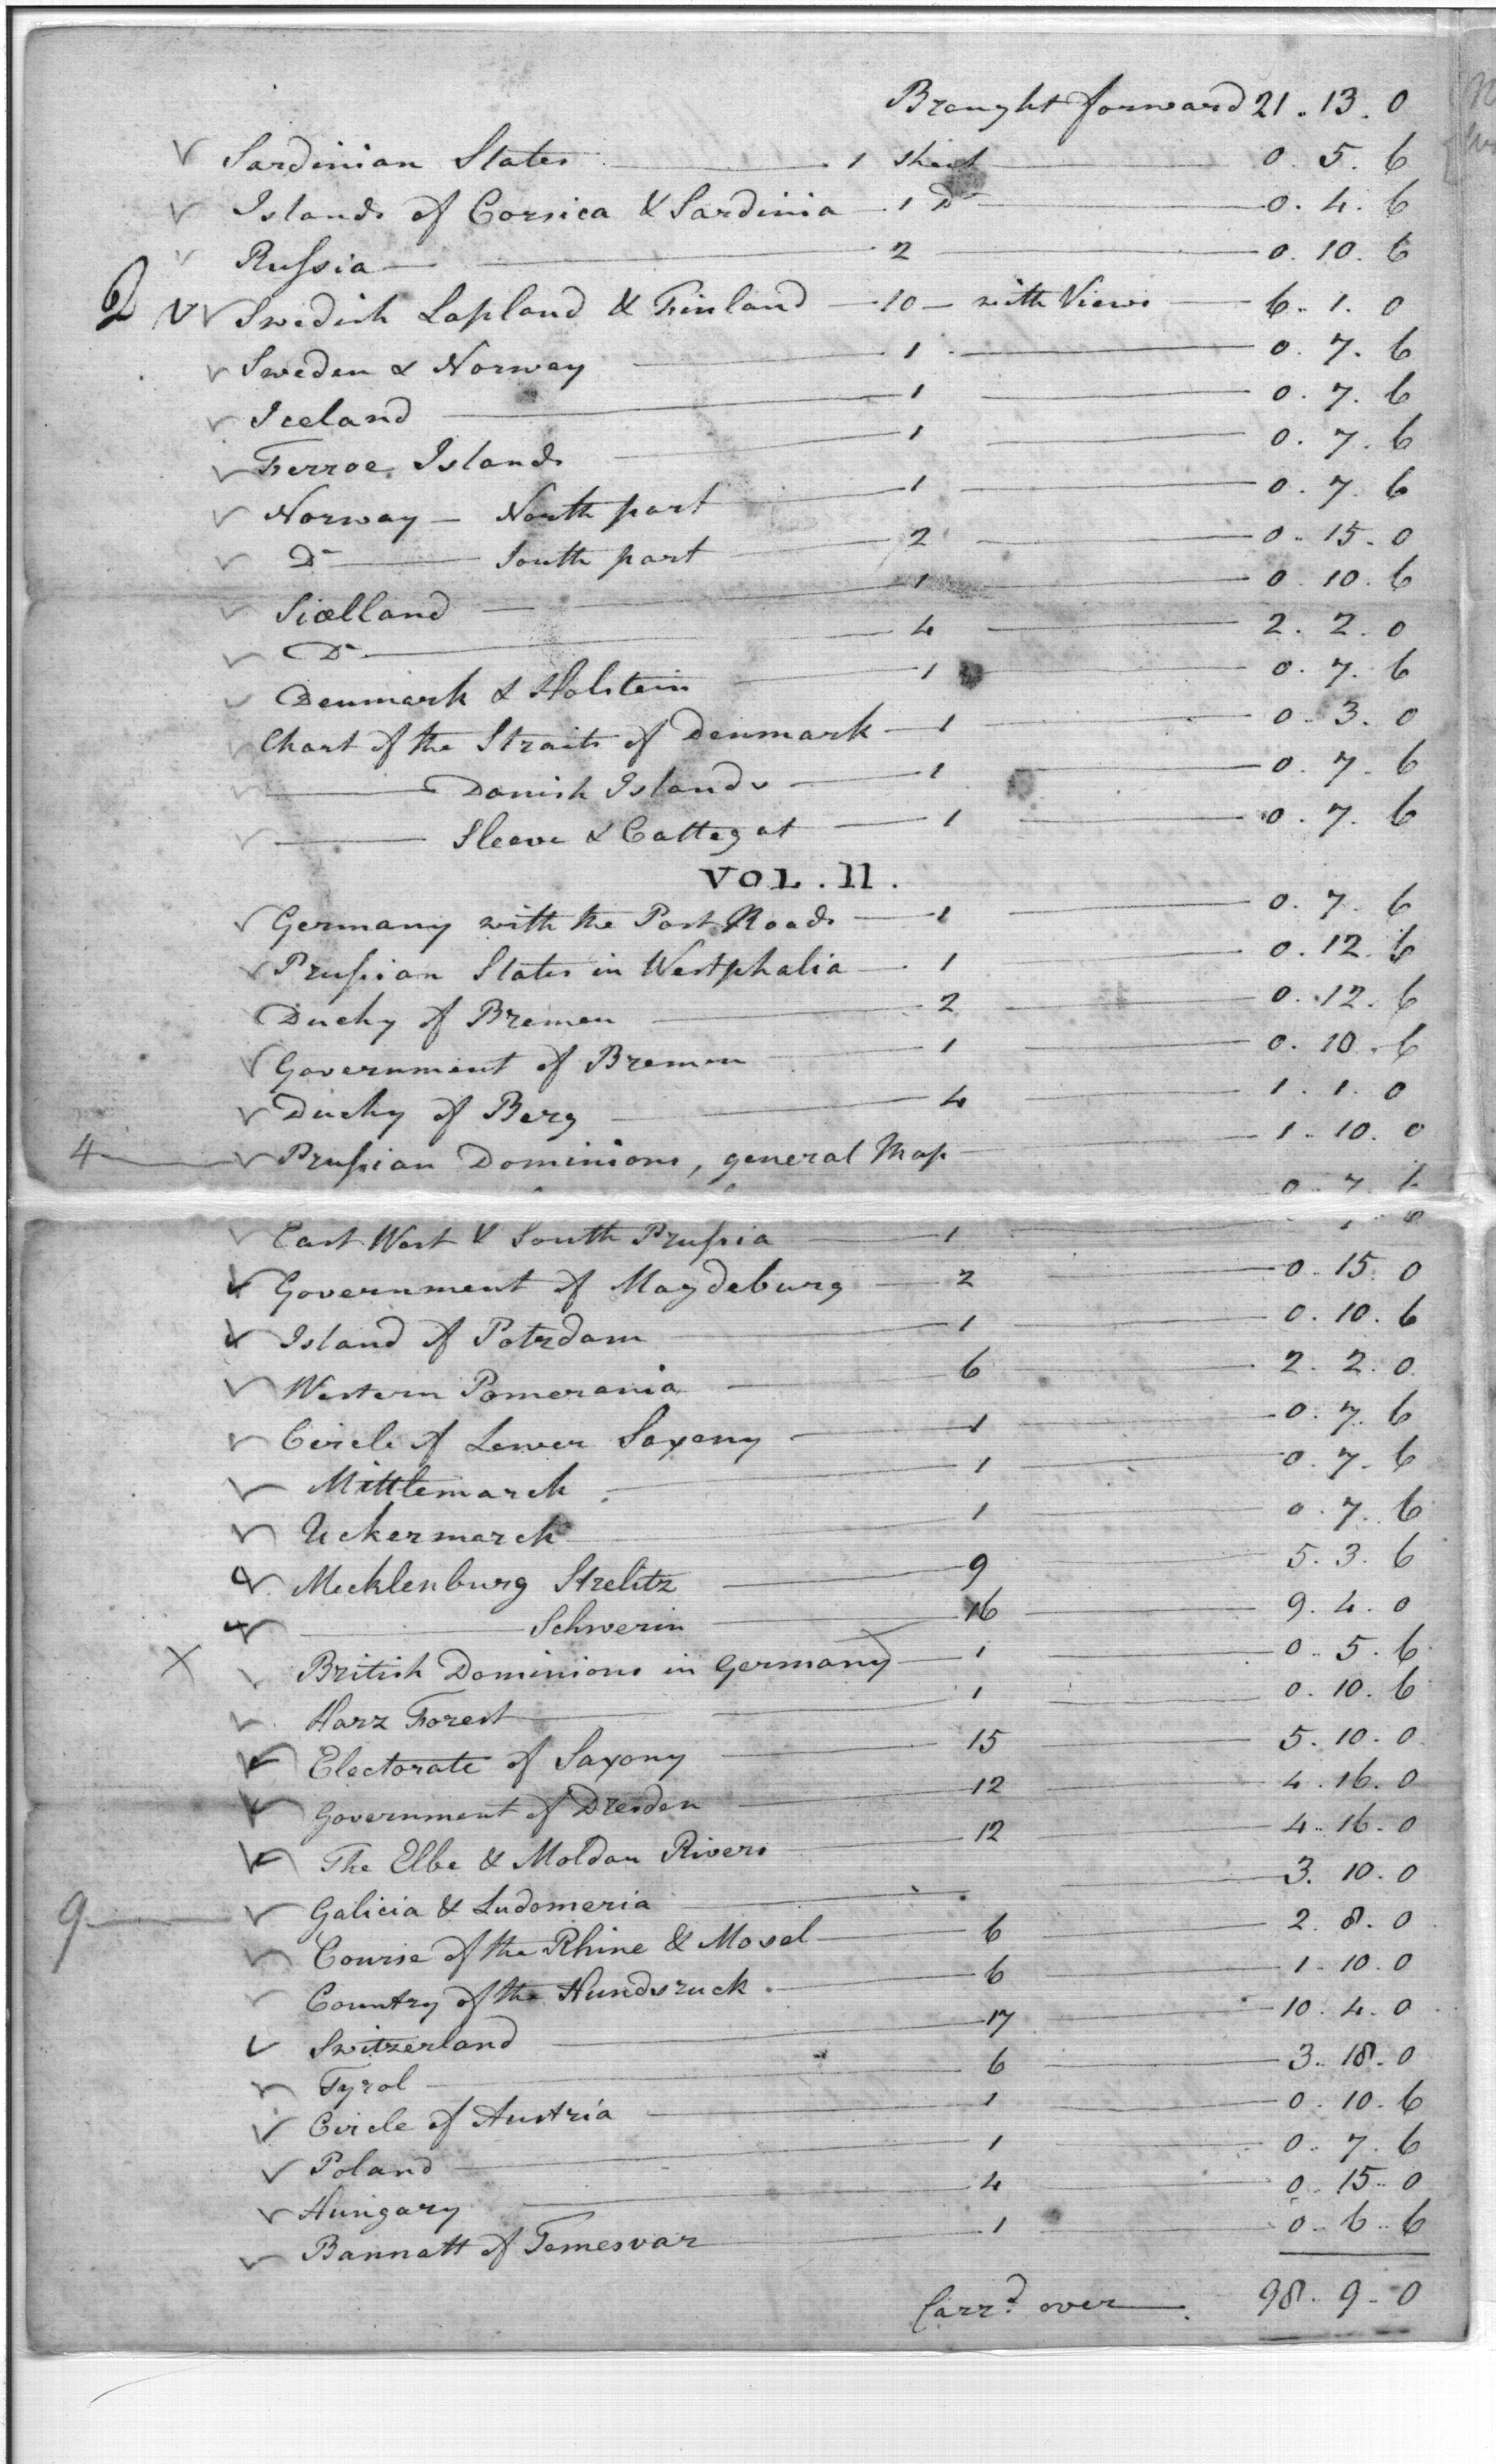 Brought forward 21 . 13 . 0
Sardinian States 1 sheet 0 . 5 . 6
Islands of Corsica & Sardinia 1 Do 0 . 4 . 6
Russia 2 0 . 10 . 6
Swedish Lapland & Finland 10 with Views 6 . 1 . 0
Sweden & Norway 1 0 . 7 . 6
Iceland 1 0 . 7 . 6
Ferroe Islands 1 0 . 7 . 6
Norway North part 1 0 . 7 . 6
Do South part 2 0 . 15 . 0
Siælland 1 0 . 10 . 6
Do 4 2 . 2 . 0
Denmark & Holstein 1 0 . 7 . 6
Chart of the Straits of Denmark 1 0 . 3 . 0
Danish Islands 1 0 . 7 . 6
Sleeve & Cattegat 1 0 . 7 . 6
VOL . II .
Germany with the Post Roads 1 0 . 7 . 6
Prussian States in Westphalia 1 0 . 12 . 6
Duchy of Bremen 2 0 . 12 . 6
Government of Bremen 1 0 . 10 . 6
Duchy of Berg 4 1 . 1 . 0
4 Prussian Dominions, general Map 1 . 10 . 0
0 . 7 . 6
East West & South Prussia 1
Government of Magdeburg 2 0 . 15 . 0
Island of Potzdam 1 0 . 10 . 6
Western Pomerania 6 2 . 2 . 0
Circle of Lower Saxony 1 0 . 7 . 6
Mittlemarck 1 0 . 7 . 6
Uckermarck 1 0 . 7 . 6
Mecklenburg Strelitz 9 5 . 3 . 6
Schwerin 16 9 . 4 . 0
X British Dominions in Germany 1 0 . 5 . 6
Harz Forest 1 0 . 10 . 6
Electorate of Saxony 15 5 . 10 . 0
Government of Dresden 12 4 . 16 . 0
The Elbe & Moldau Rivers 12 4 . 16 . 0
9 Galicia & Ludomeria 3 . 10 . 0
Course of the Rhine & Mosel 6 2 . 8 . 0
Country of the Hundsruck 6 1 . 10 . 0
Switzerland 17 10 . 4 . 0
Tyrol 6 3 . 18 . 0
Circle of Austria 1 0 . 10 . 6
Poland 1 0 . 7 . 6
Hungary 4 0 . 15 . 0
Bannatt of Temesvar 1 0 . 6 . 6
Carrd over 98 . 9 . 0